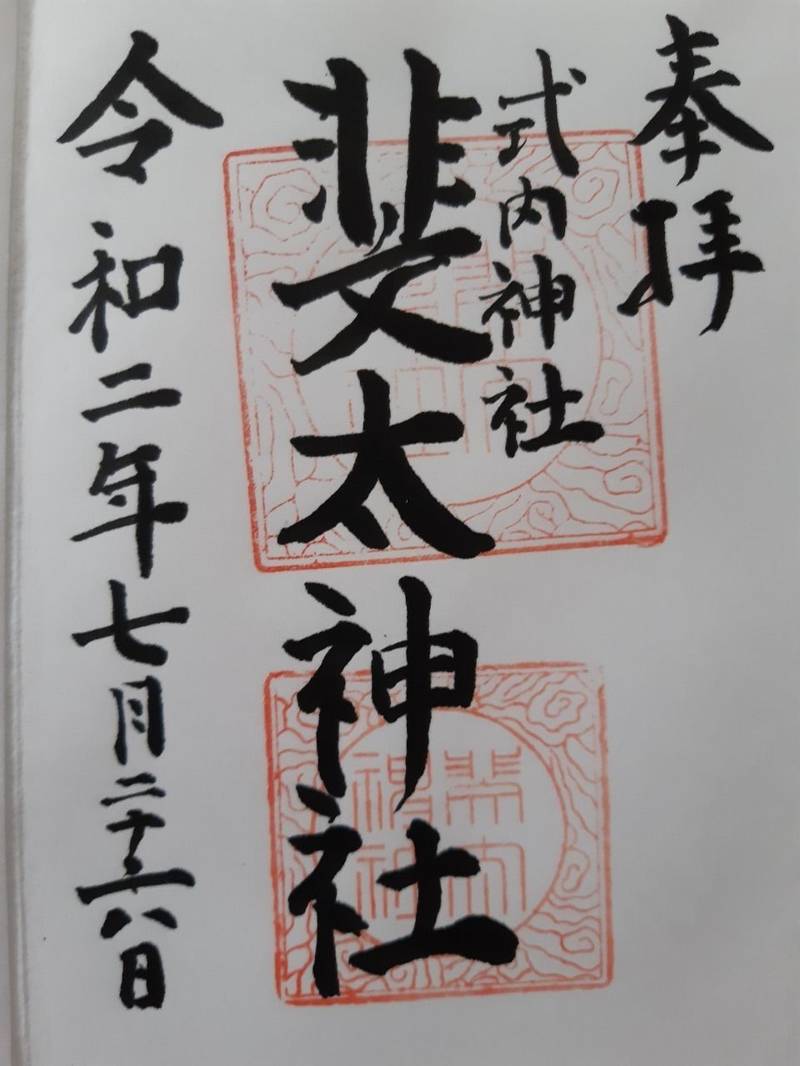 奉拝
式内神社
斐太神社
令和二年七月二十六日